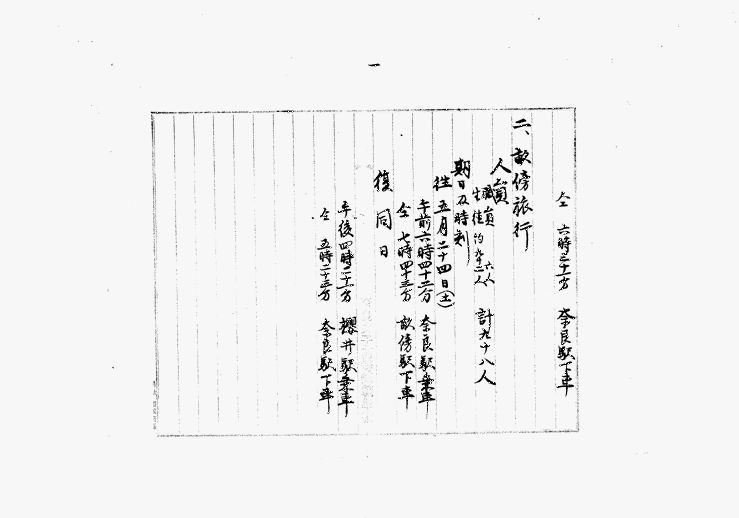 一
仝 六時三十一分 奈良駅下車
二、畝傍旅行
人員
職員 六人
生徒 約九十二人 計九十八人
期日及時刻
往 五月二十四日(土)
午前六時四十二分 奈良駅乗車
仝 七時四十三分 畝傍駅下車
復 同日
午後四時二十一分 櫻井駅乗車
仝 五時二十三分 奈良駅下車